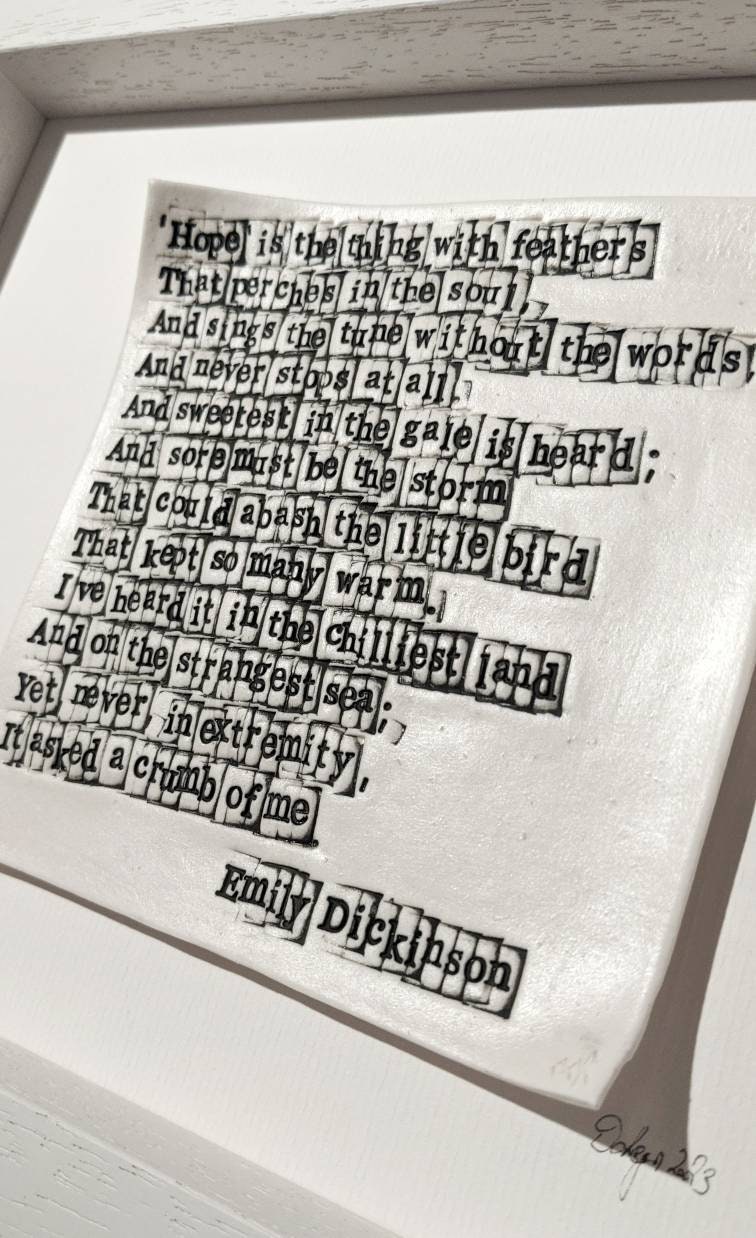 'Hope' is the thing with feathers
That perches in the soul,
And sings the tune without the words!
And never stops at all.
And sweetest in the gale is heard;
And sore must be the storm
That could abash the little bird
That kept so many warm.
I've heard it in the chilliest land
And on the strangest sea;
Yet, never, in extremity,
It asked a crumb of me.
Emily Dickinson
2023